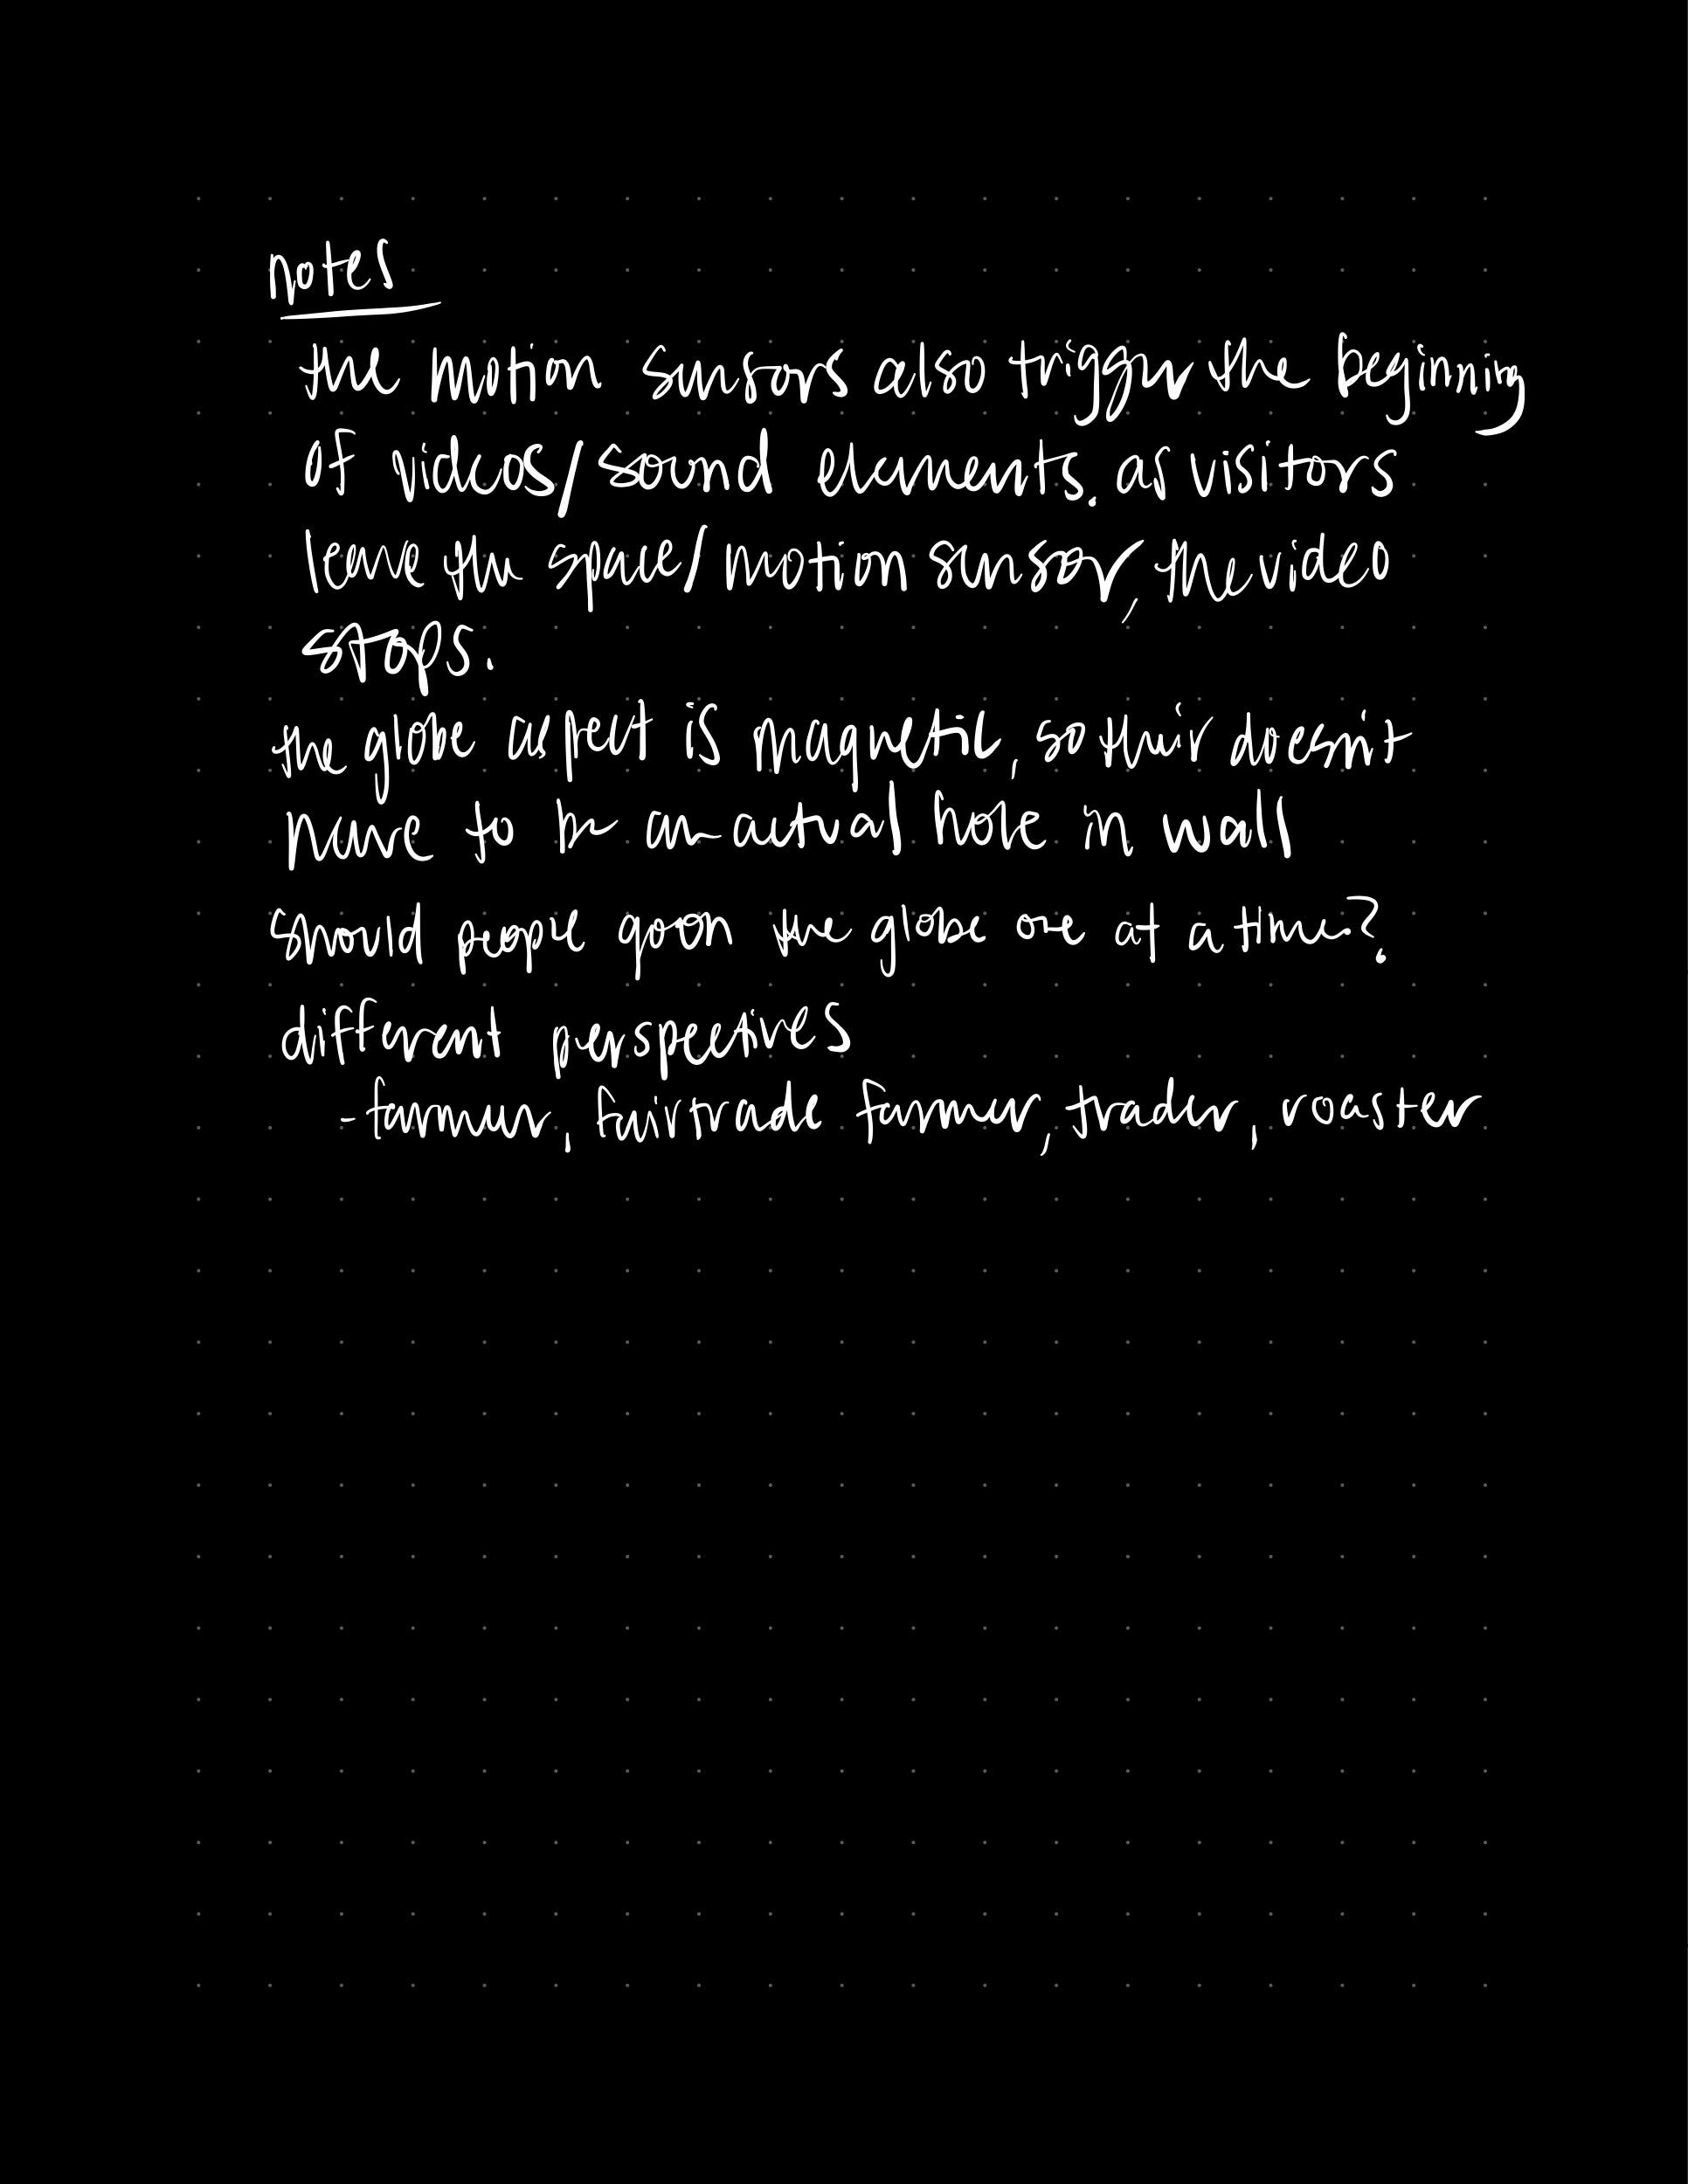 notes
the motion sensors also trigger the beginning
of videos/sound elements. as visitors
leave the space/motion sensor, the video
stops.
the globe aspect is magnetic, so their doesn't
have to be an actual hole in wall
should people go on the globe one at a time?
different perspectives
- farmer, fairtrade farmer, trader, roaster